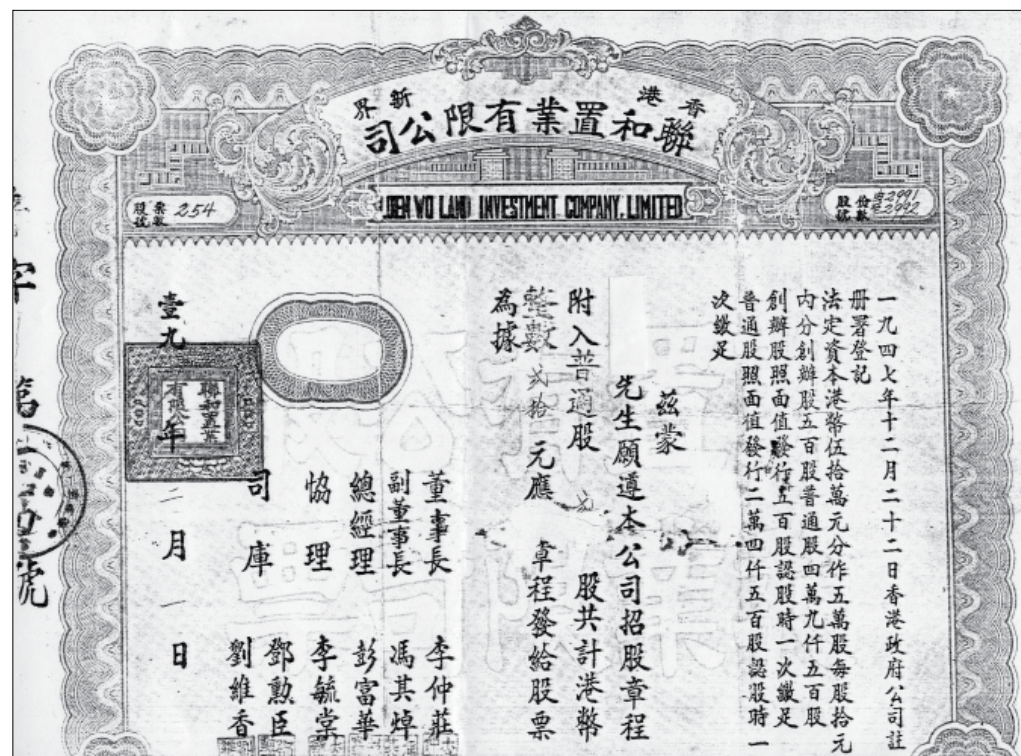 香港 新界
聯和置業有限公司
LUEN WO LAND INVESTMENT COMPANY, LIMITED
股份號數 2991 2992
股票號數 254
一九四七年十二月二十二日香港政府公司註
册署登記
法定資本港幣伍拾萬元分作五萬股每股拾元
内分創辦股五百股普通股四萬九仟五百股
創辦股照面值發行五百股認股時一次繳足
普通股照面值發行二萬四仟五百股認股時一
次繳足
茲蒙
先生願遵本公司招股章程
附入普通股 股共計港幣
整數 弍拾 元應 章程發給股票
為據
董事長 李仲莊
副董事長 馮其焯
總經理 彭富華
協理 李毓棠
司庫 鄧勳臣
劉維香
壹九 年 二月一日
聯和置業
有限公司
字第
號